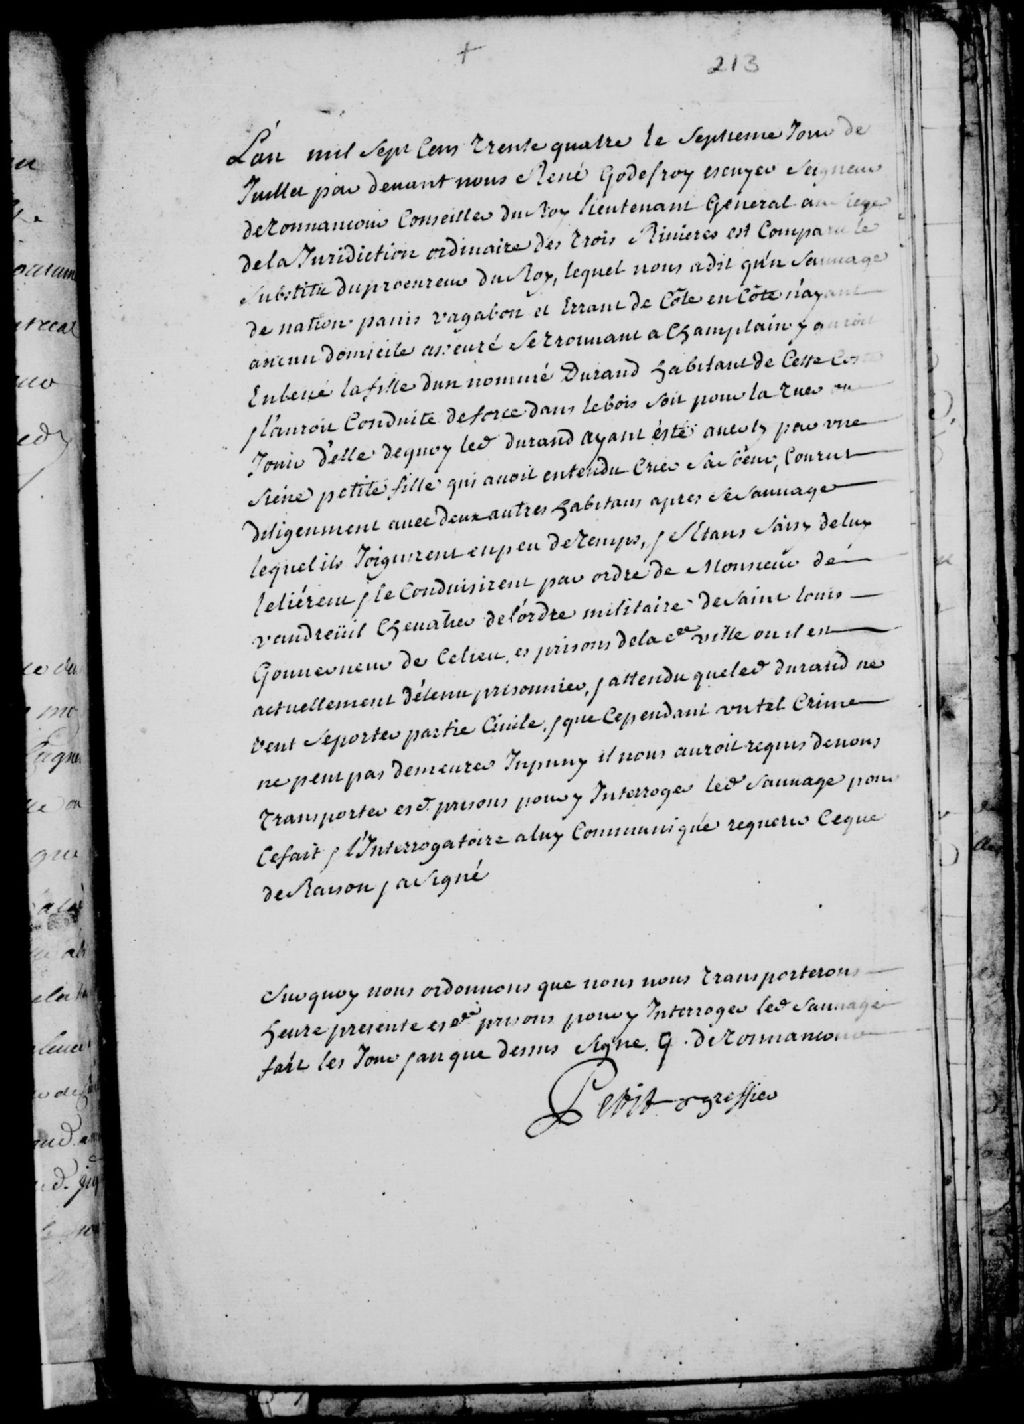 213
L'an mil sept Cens Trente quatre le Septieme Jour de
Juillet par devant nous René Godefroy escuyer Seigneur
de Tonnancour Conseiller du Roy lieutenant General au Siege
de la Juridiction ordinaire des Trois Rivieres est Comparu le
Substitu du procureur du Roy, lequel nous a dit qu'un Sauvage
de nation panis vagabon et Errant de Côte en Côte n'ayant
aucun domicile asseuré Se Trouvant a Champlain y auroit
Enlevé la fille d'un nommé Durand habitant de Cette Coste
& l'auroit Conduite de force dans le bois Soit pour la Tuer ou
Jouir d'elle dequoy led durand ayant été averty par une
Sienne petite fille qui avoit entendu Crier Sa Seur, Courut
deligenment avec deux autres habitans apres Se Sauvage
lequel ils Joignirent en peu de Temps, & S'Etans Saisy de luy
le liérent & le Conduisirent par ordre de Monsieur de
vaudreüil Chevalier de l'ordre militaire de Saint louis
Gouverneur de Celieu, es prisons de la de ville ou il est
actuellement détenu prisonnier, & attendu que led durand ne
veut Se porter partie Civile, & que Cependant un tel Crime
ne peut pas demeurer Inpuny il nous auroit requis de nous
Transporter esd prisons pour y Interroger led Sauvage pour
Ce fait & l'Interrogatoire a luy Communiquée requerir Ceque
de Raison & a Signé
Surquoy nous ordonnons que nous nous Transporterons
heure presente esd prisons pour y Interroger led Sauvage
fait les Jour & an que dessus Signe. G. De Tonnancour
Petit greffier